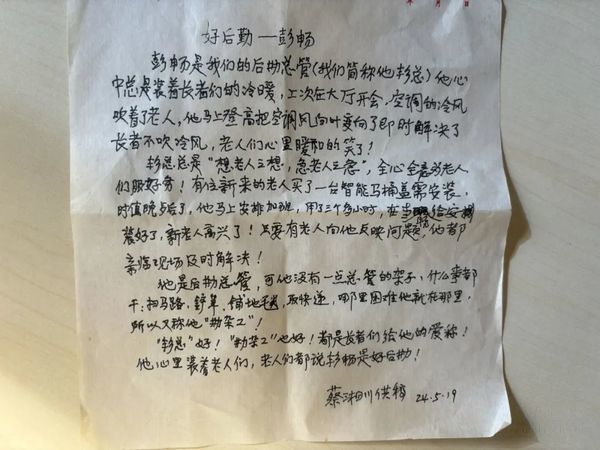 年 月 日
好后勤—彭畅
彭畅是我们的后勤总管(我们简称他彭总)他心
中总是装着长者们的冷暖,上次在大厅开会,空调的冷风
吹着了老人,他马上登高把空调风向叶变向了即时解决了
长者不吹冷风,老人们心里暖和的笑了!
彭总总是“想老人之想,急老人之急”,全心全意为老人
们服好务!有位新来的老人买了一台智能马捅盖需安装,
时值晚5点了,他马上安排加班,用了三个多小时,在当晚给安
装好了,新老人高兴了!只要有老人向他反映问题,他都
亲临现场及时解决!
他是后勤总管,可他没有一点总管的架子,什么事都
干:扫马路,铲草,铺地毯,取快递,哪里困难他就在那里,
所以又称他“勤杂工”!
“彭总”好!“勤杂工”也好!都是长者们给他的爱称!
他心里装着老人们,老人们都说彭畅是好后勤!
蔡湘川供稿 24.5.19